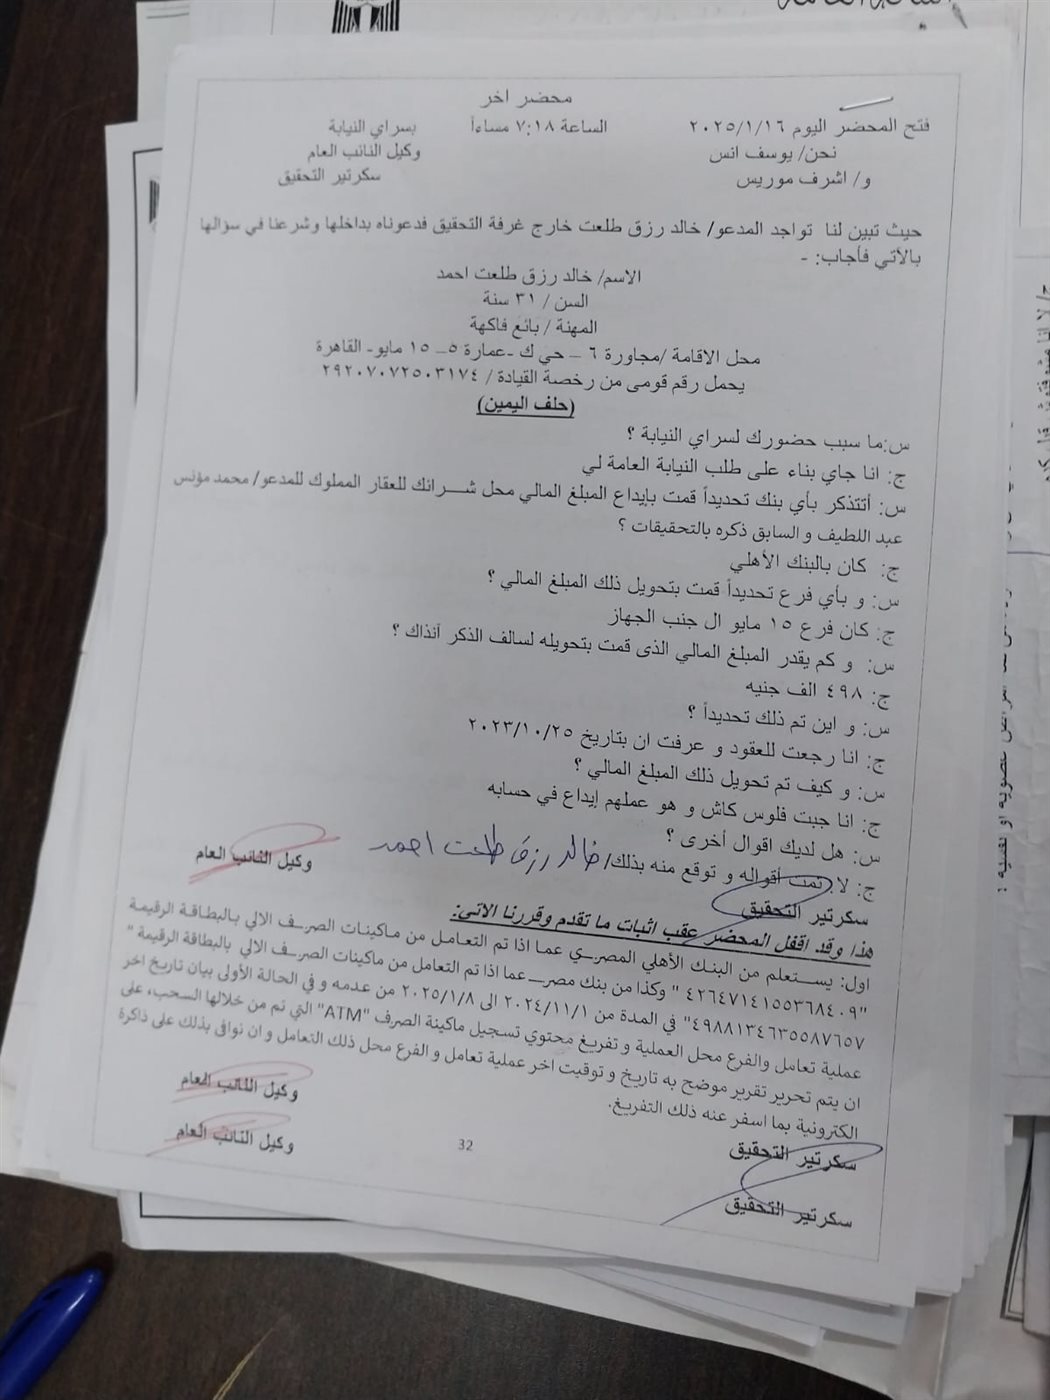 محضر اخر
فتح المحضر اليوم ٢٠٢٥/١/١٦ الساعة ٧:١٨ مساءاً بسراي النيابة
نحن/ يوسف انس وكيل النائب العام
و/ اشرف موريس سكرتير التحقيق
حيث تبين لنا تواجد المدعو/ خالد رزق طلعت خارج غرفة التحقيق فدعوناه بداخلها وشرعنا في سؤالها
بالآتي فأجاب: -
الاسم/ خالد رزق طلعت احمد
السن / ٣١ سنة
المهنة / بائع فاكهة
محل الاقامة /مجاورة ٦ – حي ك -عمارة ٥– ١٥ مايو- القاهرة
يحمل رقم قومى من رخصة القيادة / ٢٩٢٠٧٠٧٢٥٠٣١٧٤
(حلف اليمين)
س:ما سبب حضورك لسراي النيابة ؟
ج: انا جاي بناء على طلب النيابة العامة لي
س: أتتذكر بأي بنك تحديداً قمت بإيداع المبلغ المالي محل شرائك للعقار المملوك للمدعو/ محمد مؤنس
عبد اللطيف و السابق ذكره بالتحقيقات ؟
ج: كان بالبنك الأهلي
س: و بأي فرع تحديداً قمت بتحويل ذلك المبلغ المالي ؟
ج: كان فرع ١٥ مايو ال جنب الجهاز
س: و كم يقدر المبلغ المالي الذى قمت بتحويله لسالف الذكر آنذاك ؟
ج: ٤٩٨ الف جنيه
س: و اين تم ذلك تحديداً ؟
ج: انا رجعت للعقود و عرفت ان بتاريخ ٢٠٢٣/١٠/٢٥
س: و كيف تم تحويل ذلك المبلغ المالي ؟
ج: انا جبت فلوس كاش و هو عملهم إيداع في حسابه
س: هل لديك اقوال أخرى ؟
ج: لا تمت أقواله و توقع منه بذلك/ خالد رزق طلعت احمد
سكرتير التحقيق وكيل النائب العام
هذا وقد اقفل المحضر عقب اثبات ما تقدم وقررنا الاتي:
اول: يستعلم من البنك الأهلي المصري عما اذا تم التعامل من ماكينات الصرف الالي بالبطاقة الرقيمة
"٤٢٦٤٧١٤١٥٥٣٦٨٤٠٩ " وكذا من بنك مصر عما اذا تم التعامل من ماكينات الصرف الالي بالبطاقة الرقيمة "
٤٩٨٨١٣٤٦٣٥٥٨٧٦٥٧" في المدة من ٢٠٢٤/١١/١ الى ٢٠٢٥/١/٨ من عدمه و في الحالة الأولى بيان تاريخ اخر
عملية تعامل والفرع محل العملية و تفريغ محتوي تسجيل ماكينة الصرف "ATM" التي تم من خلالها السحب، على
ان يتم تحرير تقرير موضح به تاريخ و توقيت اخر عملية تعامل و الفرع محل ذلك التعامل و ان نوافى بذلك على ذاكرة
الكترونية بما اسفر عنه ذلك التفريغ.
سكرتير التحقيق وكيل النائب العام
32
سكرتير التحقيق وكيل النائب العام